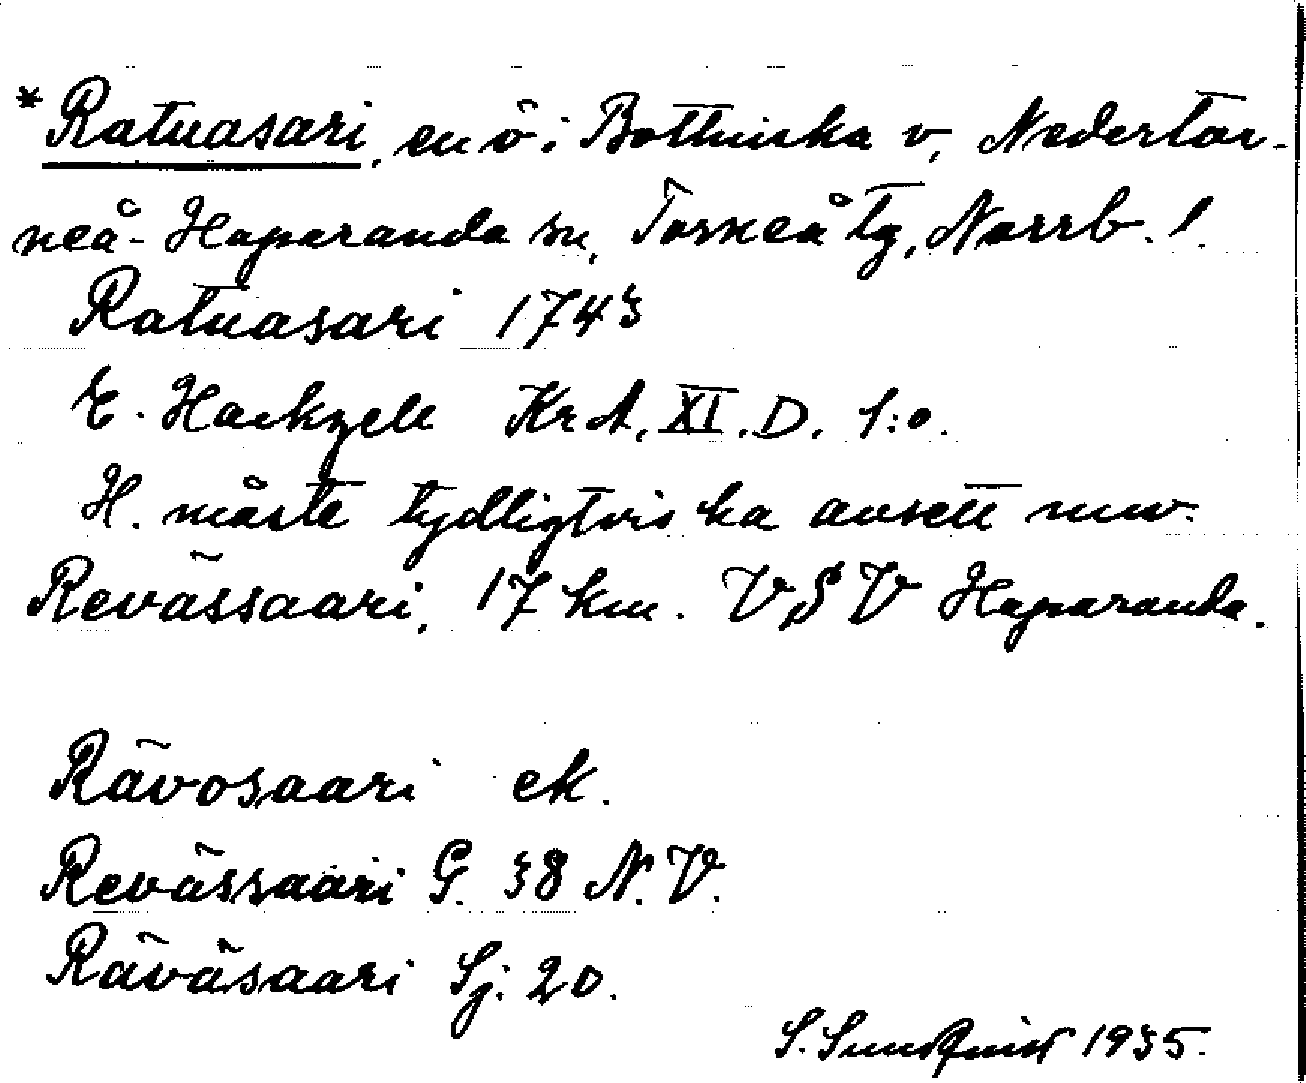 *Ratuasari, en ö i Bottniska v, Nedertor-
neå- Haparanda sn, Torneå tg, Norrb. l.
Ratuasari 1743
E. Hackzell KrA. XI. D. 1:o.
H. måste tydligtvis ha avsett nuv.
Revässaari, 17 km. VSV Haparanda.
Rävosaari ek.
Revässaari G. 38 N.V.
Räväsaari Sj. 20.
S. Sundqvist 1935.